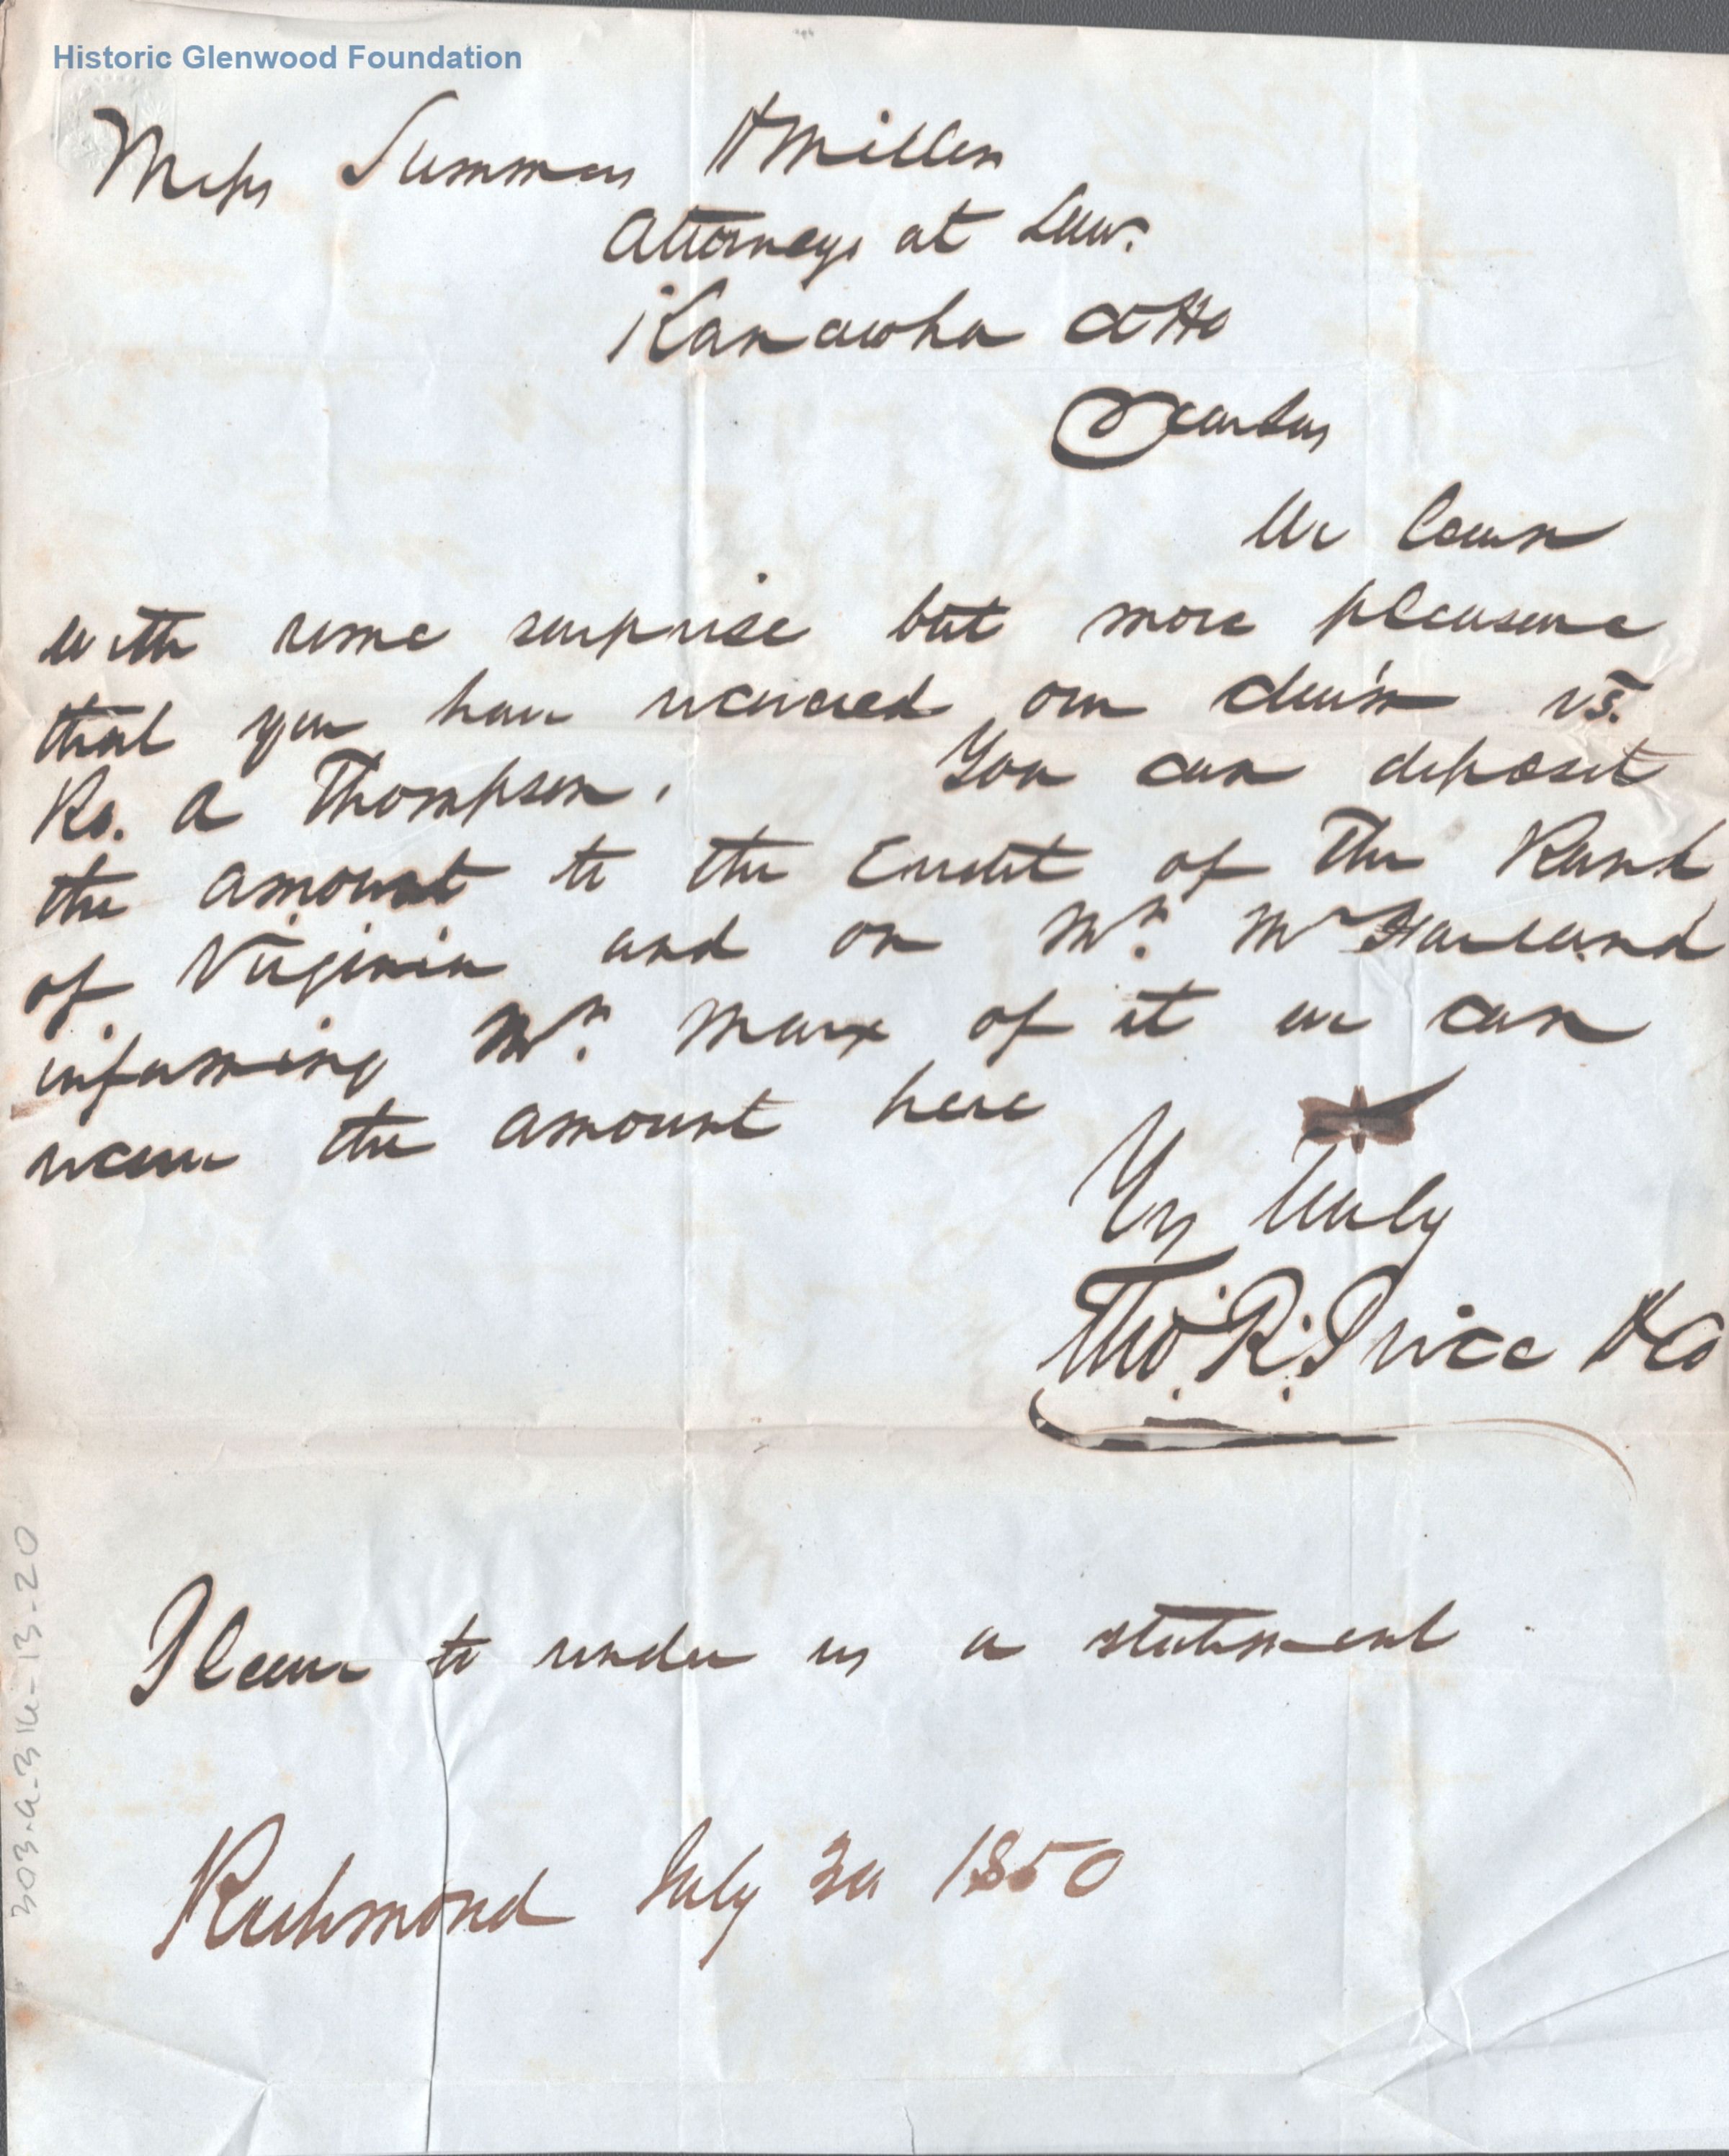 Historic Glenwood Foundation
Messrs Summers & Miller
Attorneys at Law.
Kanawha CtHo
Dear Sirs
We learn
with some surprise but more pleasure
that you have recovered our claim vs.
Ro. A Thompson. You can deposit
the amount to the Credit of The Bank
of Virginia and on Mr. McFarland
informing Mr. Marx of it we can
receive the amount here
Yrs Truly
Tho. R. Price & Co
Please to render us a statement
Richmond July 1850
303-a-314-13-20